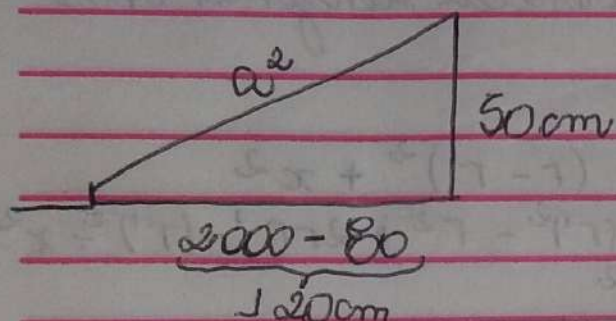 a²
50 cm
2000 - 80
120cm